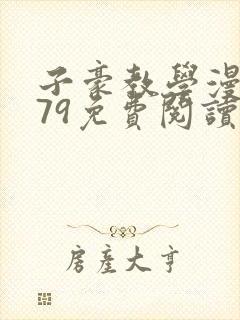 子豪教學漫
79免費閱讀
房產大亨